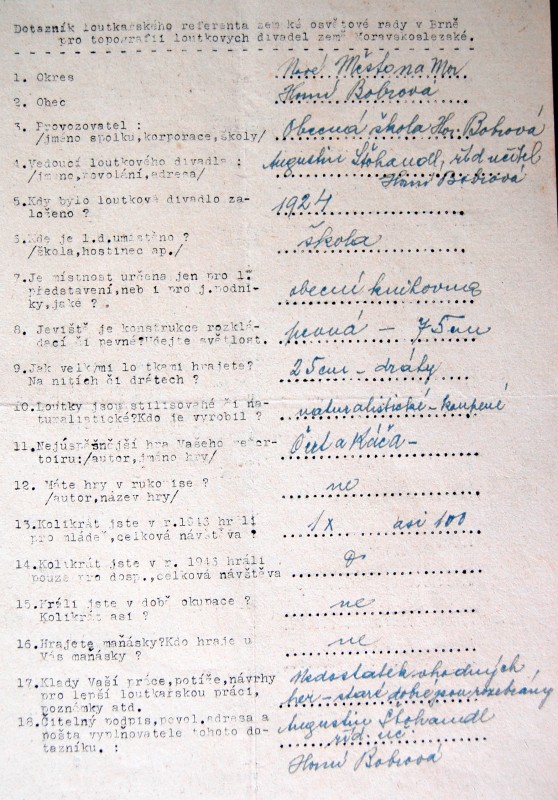 Dotazník loutkářského referenta zemské osvětové rady v Brně
pro topografii loutkových divadel země Moravskoslezské.
1. Okres Nové Město na Mor
2. Obec Horní Bobrová
3. Provozovatel : Obecná škola Hor. Bobrová
/jméno spolku,korporace,školy/
4.Vedoucí loutkového divadla : Augustin Štohandl, říd učitel
/jméno,povolání,adresa/ Horní Bobrová
5.Kdy bylo loutkové divadlo za- 1924
loženo ?
6.Kde je l.d.umístěno ? škola
/škola,hostinec ap./
7.Je místnost určena jen pro l.
představení,neb i pro j.podni- obecní knihovna
ky,jaké ?
8. Jeviště je konstrukce rozklá- pevná – 75 cm
dací či pevné?Udejte světlost.
9.Jak velkými loutkami hrajete? 25cm – dráty
Na nitích či drátech ?
10.Loutky jsou stilisované či na- naturalistické – koupené
turalistické?Kdo je vyrobil ?
11.Nejúspěšnější hra Vašeho reper- Čert a Káča –
toiru:/autor,jméno hry/
12. Máte hry v rukopise ? ne
/autor,název hry/
13.Kolikrát jste v r.1943 hráli 1x asi 100
pro mládež,celková návštěva ?
14.Kolikrát jste v r. 1943 hráli
pouze pro dosp.,celková návštěva
15.Hráli jste v době okupace ? ne
Kolikrát asi ?
16.Hrajete maňásky?Kdo hraje u ne
Vás maňásky ?
17.Klady Vaší práce,potíže,návrhy Nedostatek vhodných
pro lepší loutkařskou práci, her – staré dobré jsou rozebrány
poznámky atd.
18.Čitelný podpis,povol.adresa a Augustin Štohandl
pošta vyplňovatele tohoto do- říd. uč.
tazníku. : Horní Bobrová